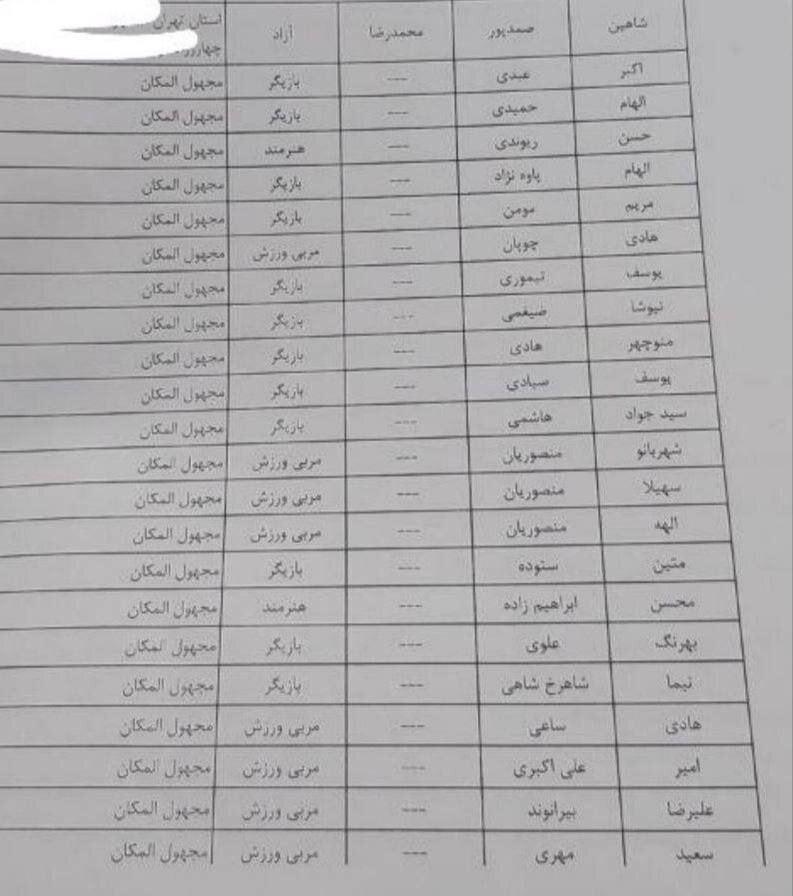 شاهین صمدپور محمدرضا آزاد استان تهران
اکبر عبدی --- بازیگر مجهول المکان
الهام حمیدی --- بازیگر مجهول المکان
حسن ریوندی --- هنرمند مجهول المکان
الهام پاوه نژاد --- بازیگر مجهول المکان
مریم مومن --- بازیگر مجهول المکان
هادی چوپان --- مربی ورزش مجهول المکان
یوسف تیموری --- بازیگر مجهول المکان
نیوشا ضیغمی --- بازیگر مجهول المکان
منوچهر هادی --- بازیگر مجهول المکان
یوسف صیادی --- بازیگر مجهول المکان
سید جواد هاشمی --- بازیگر مجهول المکان
شهربانو منصوریان --- مربی ورزش مجهول المکان
سهیلا منصوریان --- مربی ورزش مجهول المکان
الهه منصوریان --- مربی ورزش مجهول المکان
متین ستوده --- بازیگر مجهول المکان
محسن ابراهیم زاده --- هنرمند مجهول المکان
بهرنگ علوی --- بازیگر مجهول المکان
نیما شاهرخ شاهی --- بازیگر مجهول المکان
هادی ساعی --- مربی ورزش مجهول المکان
امیر علی اکبری --- مربی ورزش مجهول المکان
علیرضا بیرانوند --- مربی ورزش مجهول المکان
سعید مهری --- مربی ورزش مجهول المکان